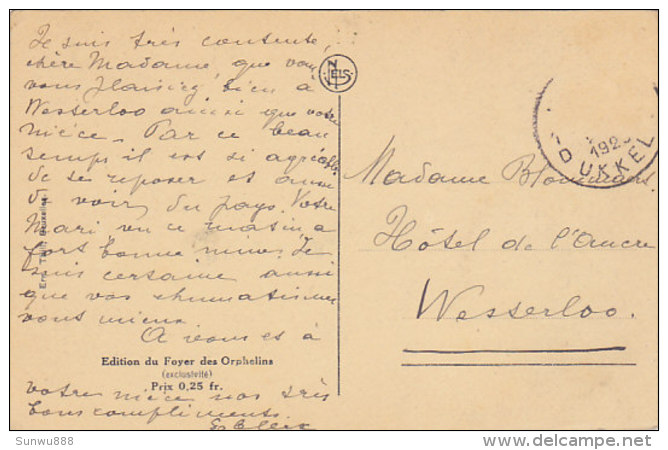 Je suis très contente,
chère Madame, que vous
vous plaisiez bien à
Westerloo ainsi que votre
nièce. Par ce beau
temps il est si agréable
de se reposer et aussi
de voir du pays. Votre
Mari, vu ce matin, a
fort bonne mine. Je
suis certaine aussi
que vos rhumatismes
vont mieux.
A vous et à
votre nièce nos très
bons compliments.
NELS
Ern. Thill, Bruxelles
Edition du Foyer des Orphelins
(exclusivité)
Prix 0,25 fr.
192
D UKKEL
Madame
Hôtel de l'Ancre
Westerloo.
Sunwu888
delcampe.net